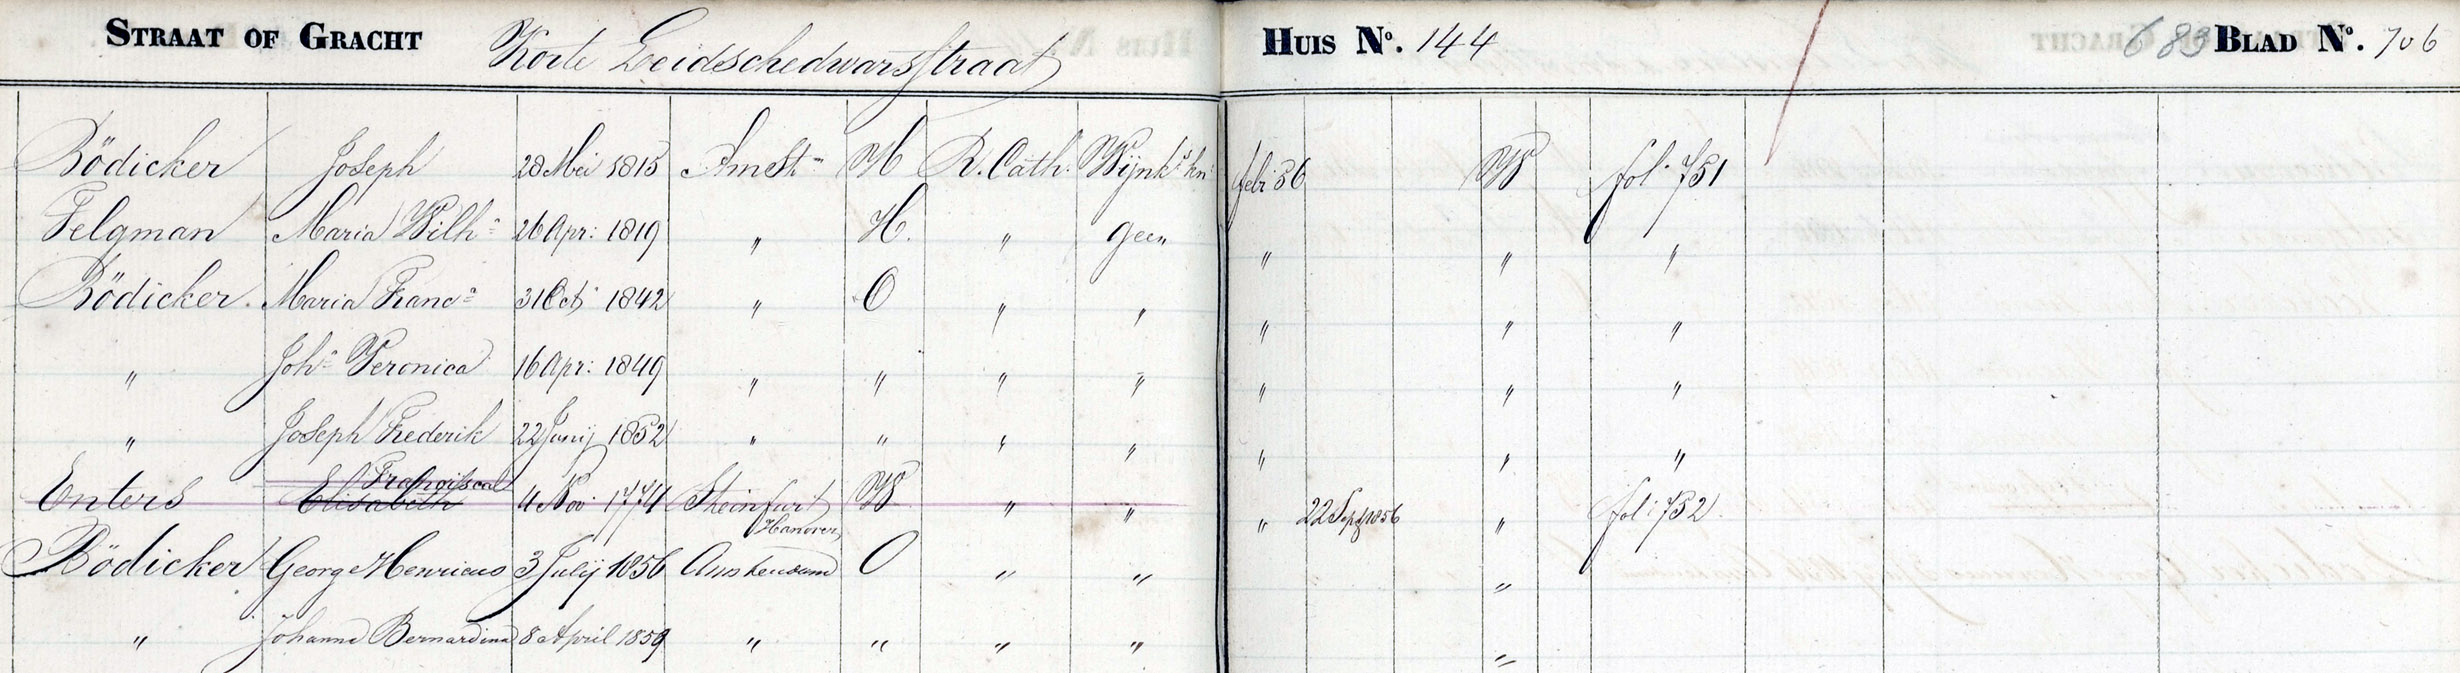 STRAAT OF GRACHT Korte Leidschedwarsstraat HUIS No. 144 683 BLAD No. 706
Bödicker Joseph 28 Mei 1815 Amstm H R. Cath. Wijnk: kn: febr: 56 W fol: 751
Felgman Maria Wilh: 26 Apr: 1819 " H. " geen " " "
Bödicker. Maria Franc: 31 Oct 1842 " O " " " " "
" Joha Veronica 16 Apr: 1849 " " " " " " "
" Joseph Frederik 22 Junij 1852 " " " " " " "
Francisca
Enters Elisabeth 4 Nov: 1774 Steinfurt W " " " 22 Sept 1856 " fol: 752
Hanover
Bödicker George Henricus 3 Julij 1856 Amsterdam O " " "
" Johanna Bernardina 8 April 1859 " " " " "